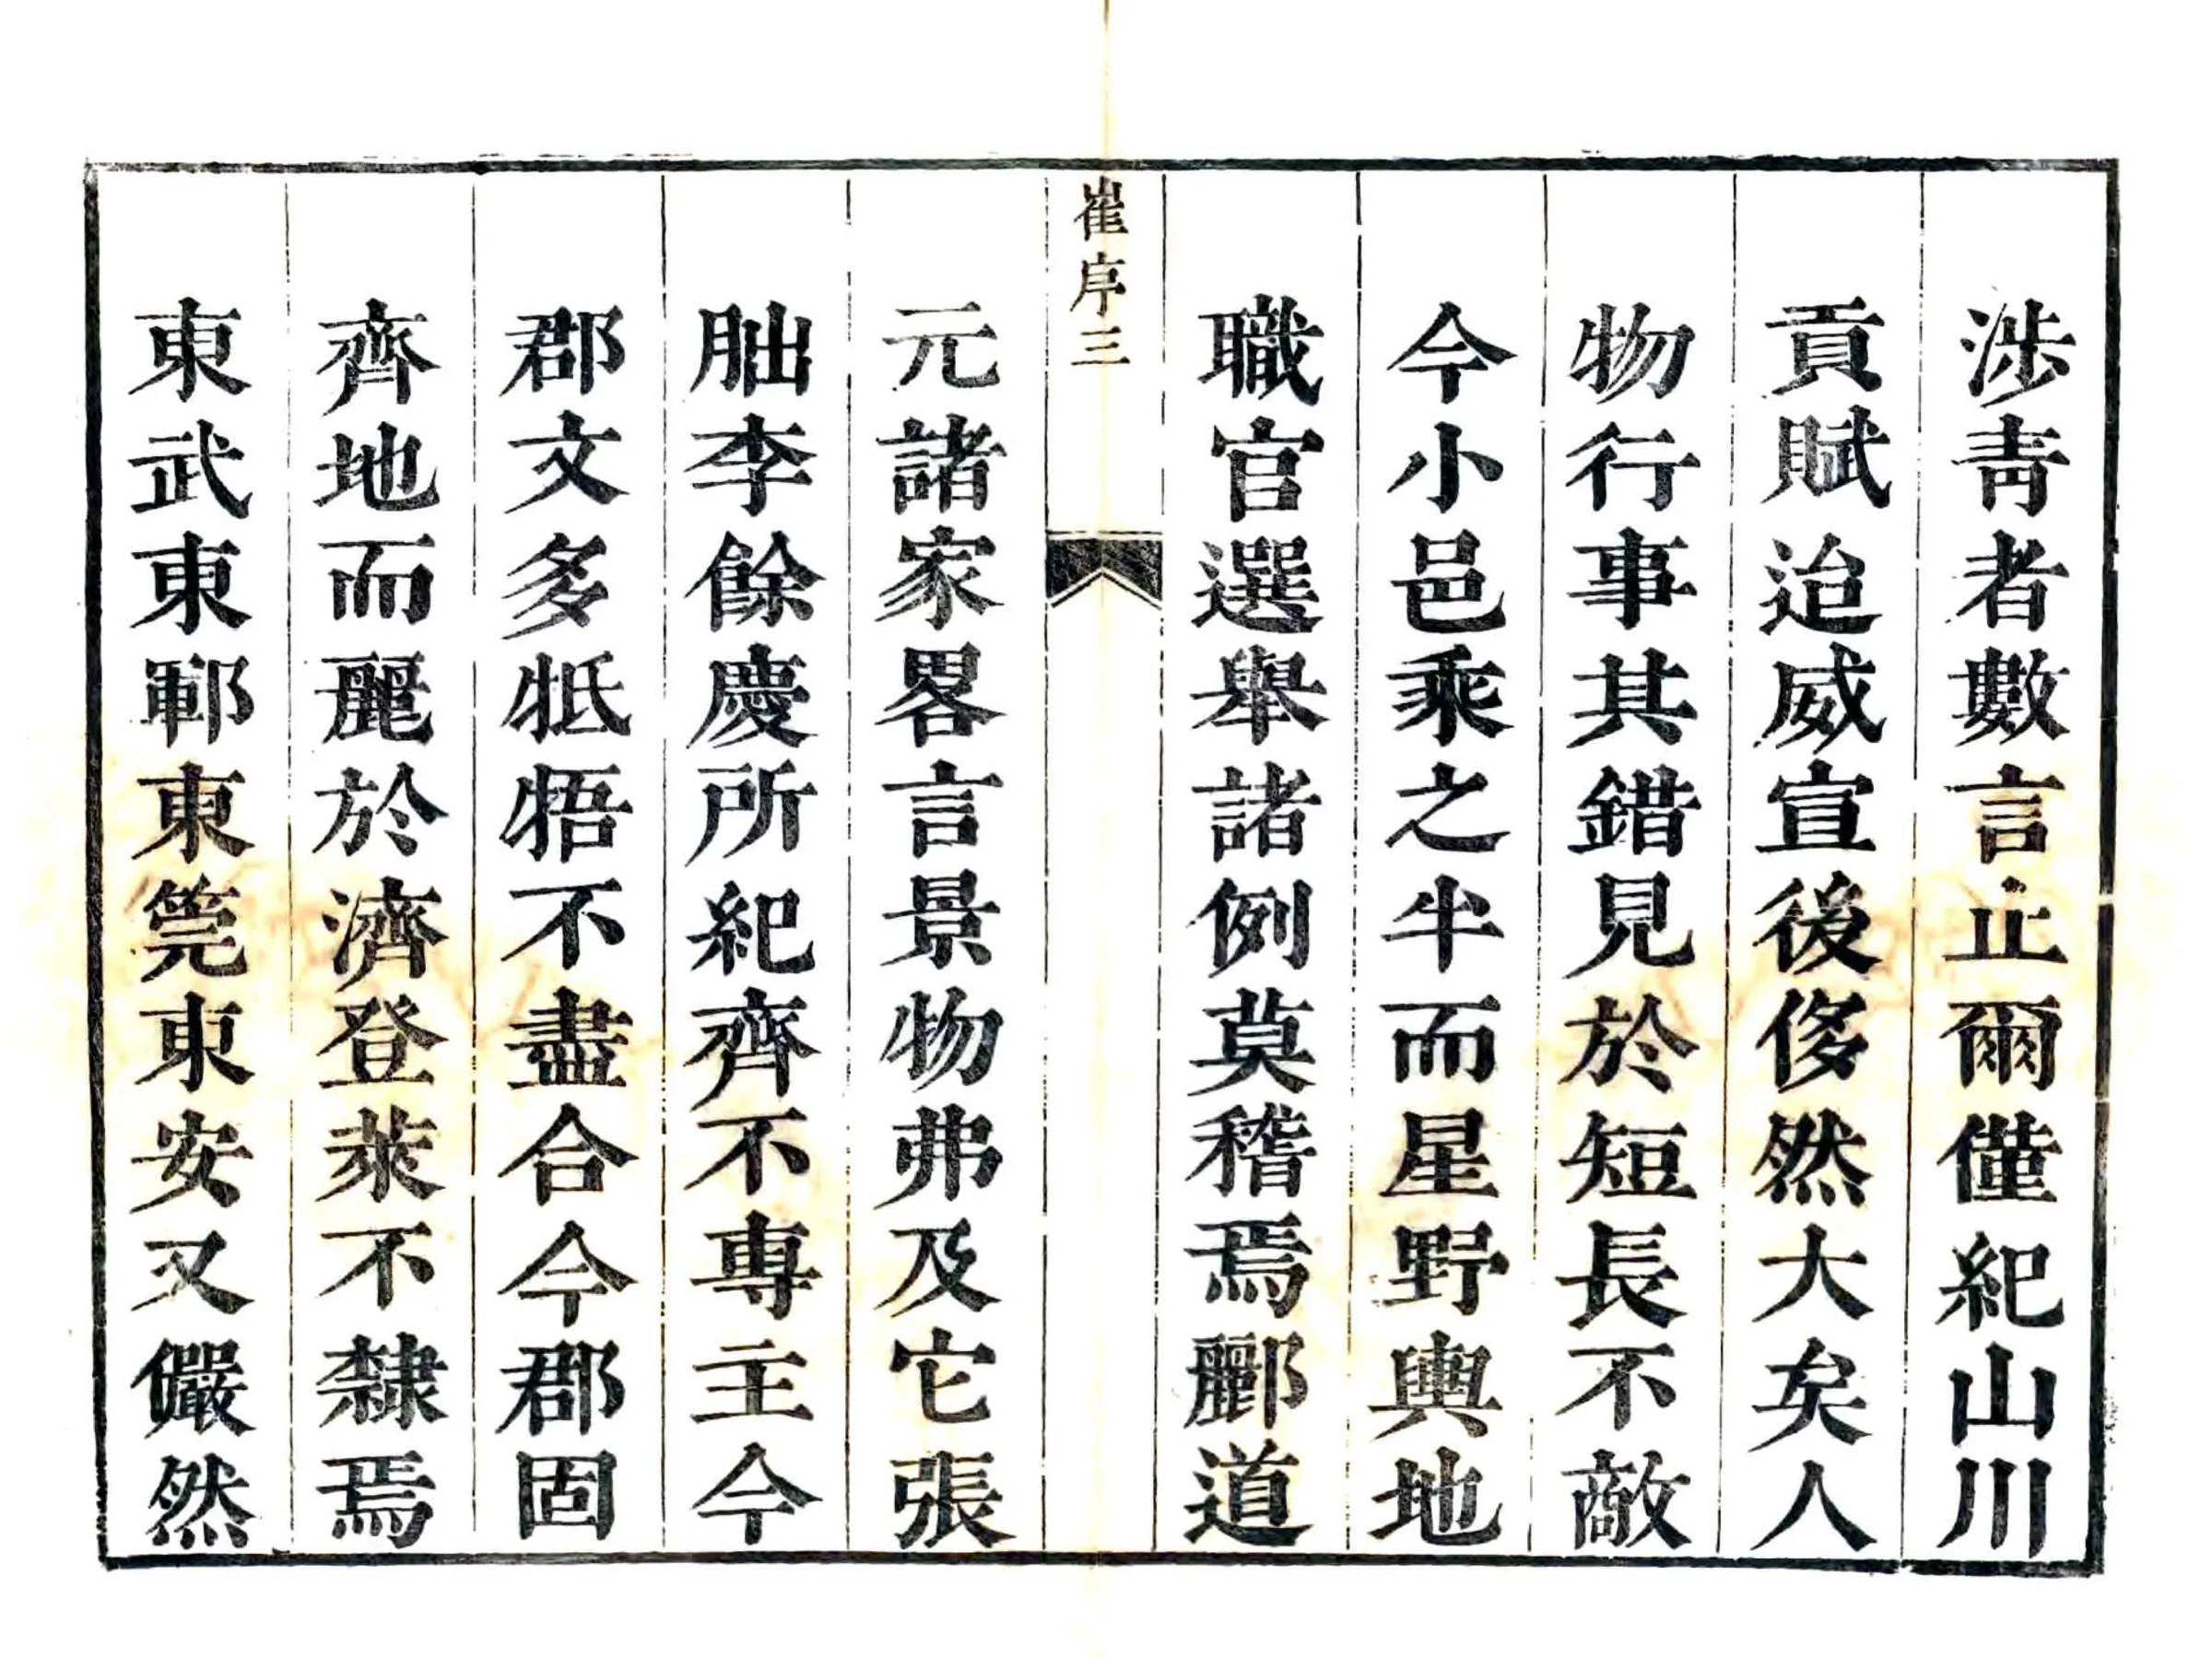 涉靑者數言止爾僅紀山川
貢賦迨威宣後侈然大矣人
物行事其錯見於短長不敵
今小邑乘之半而星野輿地
職官選舉諸例莫稽焉酈道
崔序三
元諸家畧言景物弗及它張
朏李餘慶所紀齊不專主今
郡文多牴牾不盡合今郡固
齊地而麗於濟登萊不隸焉
東武東鄆東莞東安又儼然